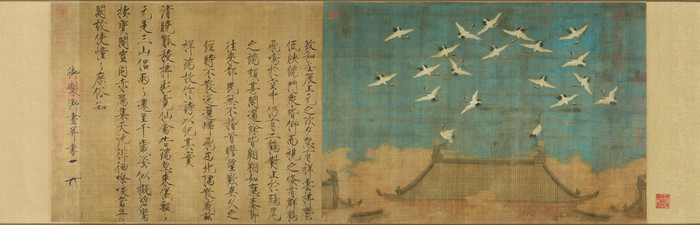 政和壬辰上元之次夕忽有祥雲拂鬱
低映端門眾皆仰而視之倏有群鶴
飛鳴於空中仍有二鶴對止於鴟尾
之端頗甚閒適餘皆翱翔如應奏節
往來都民無不稽首瞻望歎異久之
經時不散迤邐歸飛西北隅散感茲
祥瑞故作詩以紀其實
清曉觚稜拂彩霓仙禽告瑞忽來儀飄〻
元是三山侶兩〻還呈千歲姿似擬碧鸞
棲寶閣豈同赤雁集天池徘徊嘹唳當丹
闕故使憧〻庶俗知
御製御畫并書